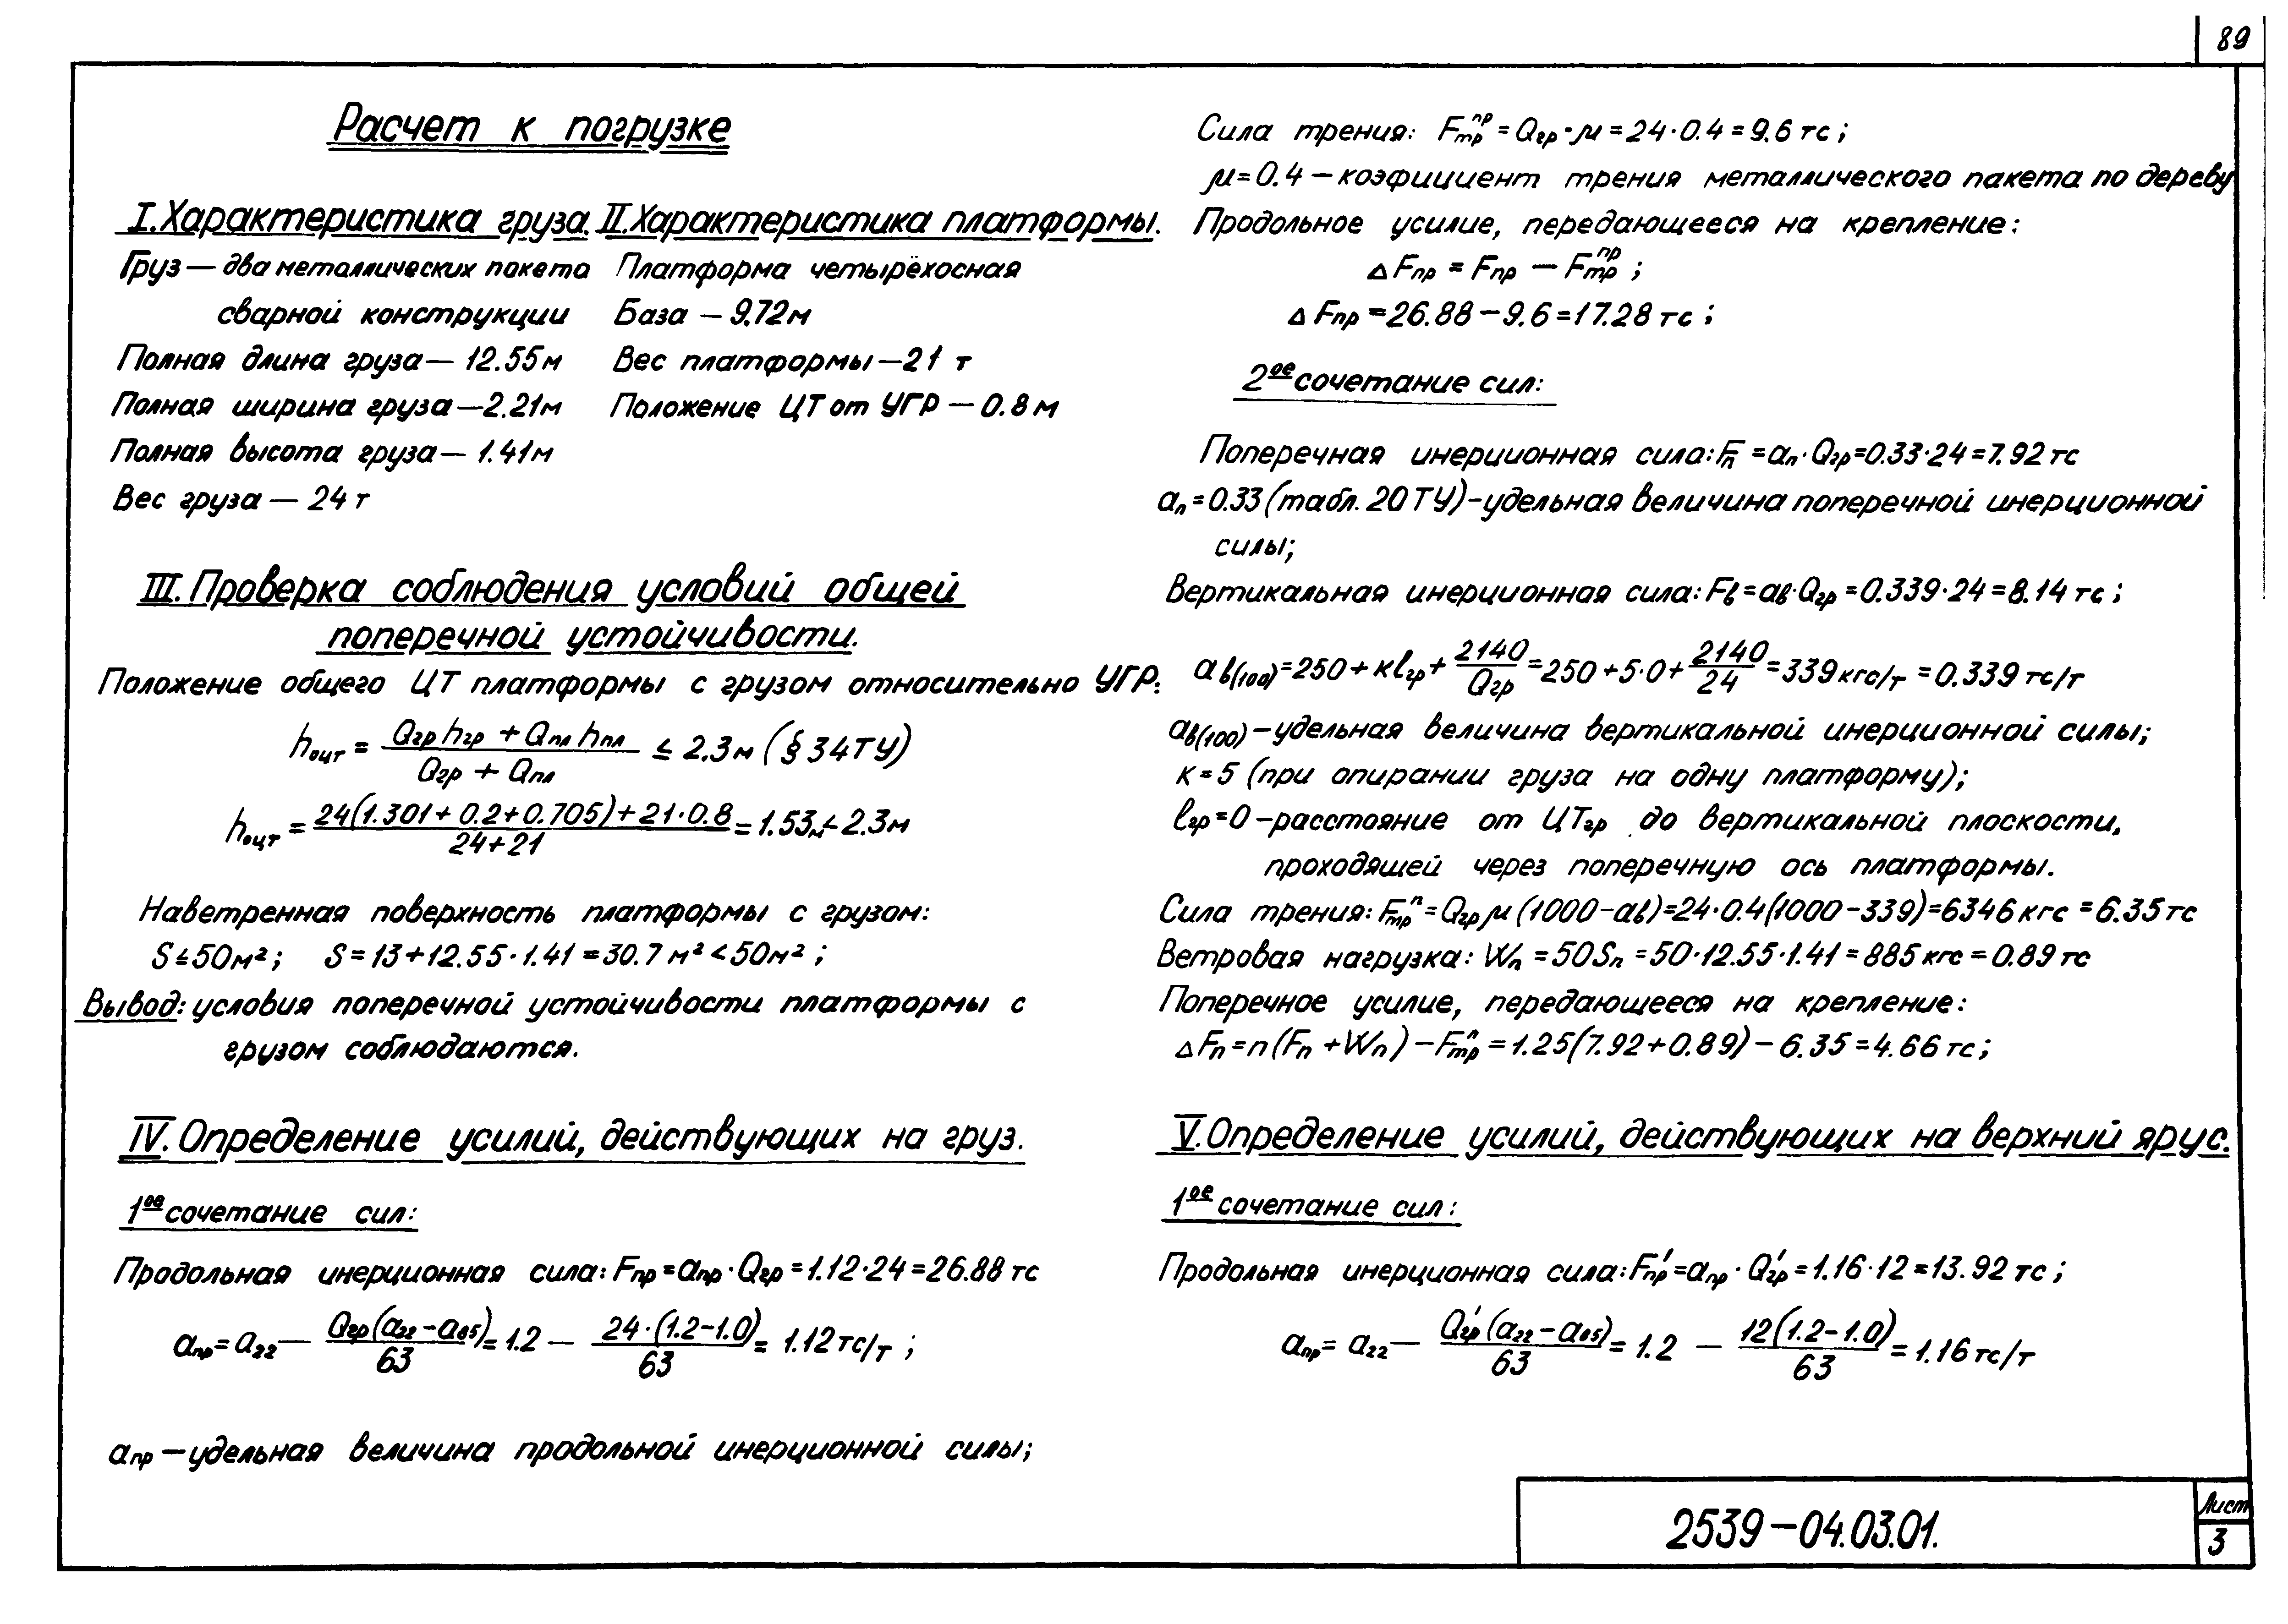 89
Расчет к погрузке
I. Характеристика груза.
Груз — два металлических пакета
сварной конструкции
Полная длина груза — 12.55м
Полная ширина груза — 2.21м
Полная высота груза — 1.41м
Вес груза — 24 т
II. Характеристика платформы.
Платформа четырёхосная
База — 9.72м
Вес платформы — 21 т
Положение ЦТ от УГР — 0.8 м
III. Проверка соблюдения условий общей
поперечной устойчивости.
Положение общего ЦТ платформы с грузом относительно УГР:
hоцт = (Qгр hгр + Qпл hпл) / (Qгр + Qпл) ≤ 2.3м (§ 34 ТУ)
hоцт = (24(1.301 + 0.2 + 0.705) + 21·0.8) / (24+21) = 1.53м < 2.3м
Наветренная поверхность платформы с грузом:
S ≤ 50м²; S = 13 + 12.55·1.41 = 30.7 м² < 50м²;
Вывод: условия поперечной устойчивости платформы с
грузом соблюдаются.
IV. Определение усилий, действующих на груз.
1ое сочетание сил:
Продольная инерционная сила: Fпр = aпр · Qгр = 1.12·24 = 26.88 тс
aпр = a22 — Qгр(a22 - a85) / 63 = 1.2 — 24·(1.2-1.0) / 63 = 1.12 тс/т;
aпр — удельная величина продольной инерционной силы;
Сила трения: Fтр^пр = Qгр·μ = 24·0.4 = 9.6 тс;
μ = 0.4 — коэфициент трения металлического пакета по дереву
Продольное усилие, передающееся на крепление:
ΔFпр = Fпр — Fтр^пр;
ΔFпр = 26.88 — 9.6 = 17.28 тс;
2ое сочетание сил:
Поперечная инерционная сила: Fп = aп·Qгр = 0.33·24 = 7.92 тс
aп = 0.33 (табл. 20 ТУ) — удельная величина поперечной инерционной
силы;
Вертикальная инерционная сила: Fв = aв·Qгр = 0.339·24 = 8.14 тс;
aв(100) = 250 + кlгр + 2140 / Qгр = 250 + 5·0 + 2140 / 24 = 339 кгс/т = 0.339 тс/т
aв(100) — удельная величина вертикальной инерционной силы;
к = 5 (при опирании груза на одну платформу);
lгр = 0 — расстояние от ЦТгр до вертикальной плоскости,
проходящей через поперечную ось платформы.
Сила трения: Fтр^п = Qгр μ (1000 - aв) = 24·0.4(1000 - 339) = 6346 кгс = 6.35 тс
Ветровая нагрузка: Wп = 50Sп = 50·12.55·1.41 = 885 кгс = 0.89 тс
Поперечное усилие, передающееся на крепление:
ΔFп = n(Fп + Wп) — Fтр^п = 1.25(7.92 + 0.89) — 6.35 = 4.66 тс;
V. Определение усилий, действующих на верхний ярус.
1ое сочетание сил:
Продольная инерционная сила: F'пр = aпр · Q'гр = 1.16·12 = 13.92 тс;
aпр = a22 — Q'гр(a22 - a85) / 63 = 1.2 — 12(1.2-1.0) / 63 = 1.16 тс/т
2539—04.03.01.
Лист
3